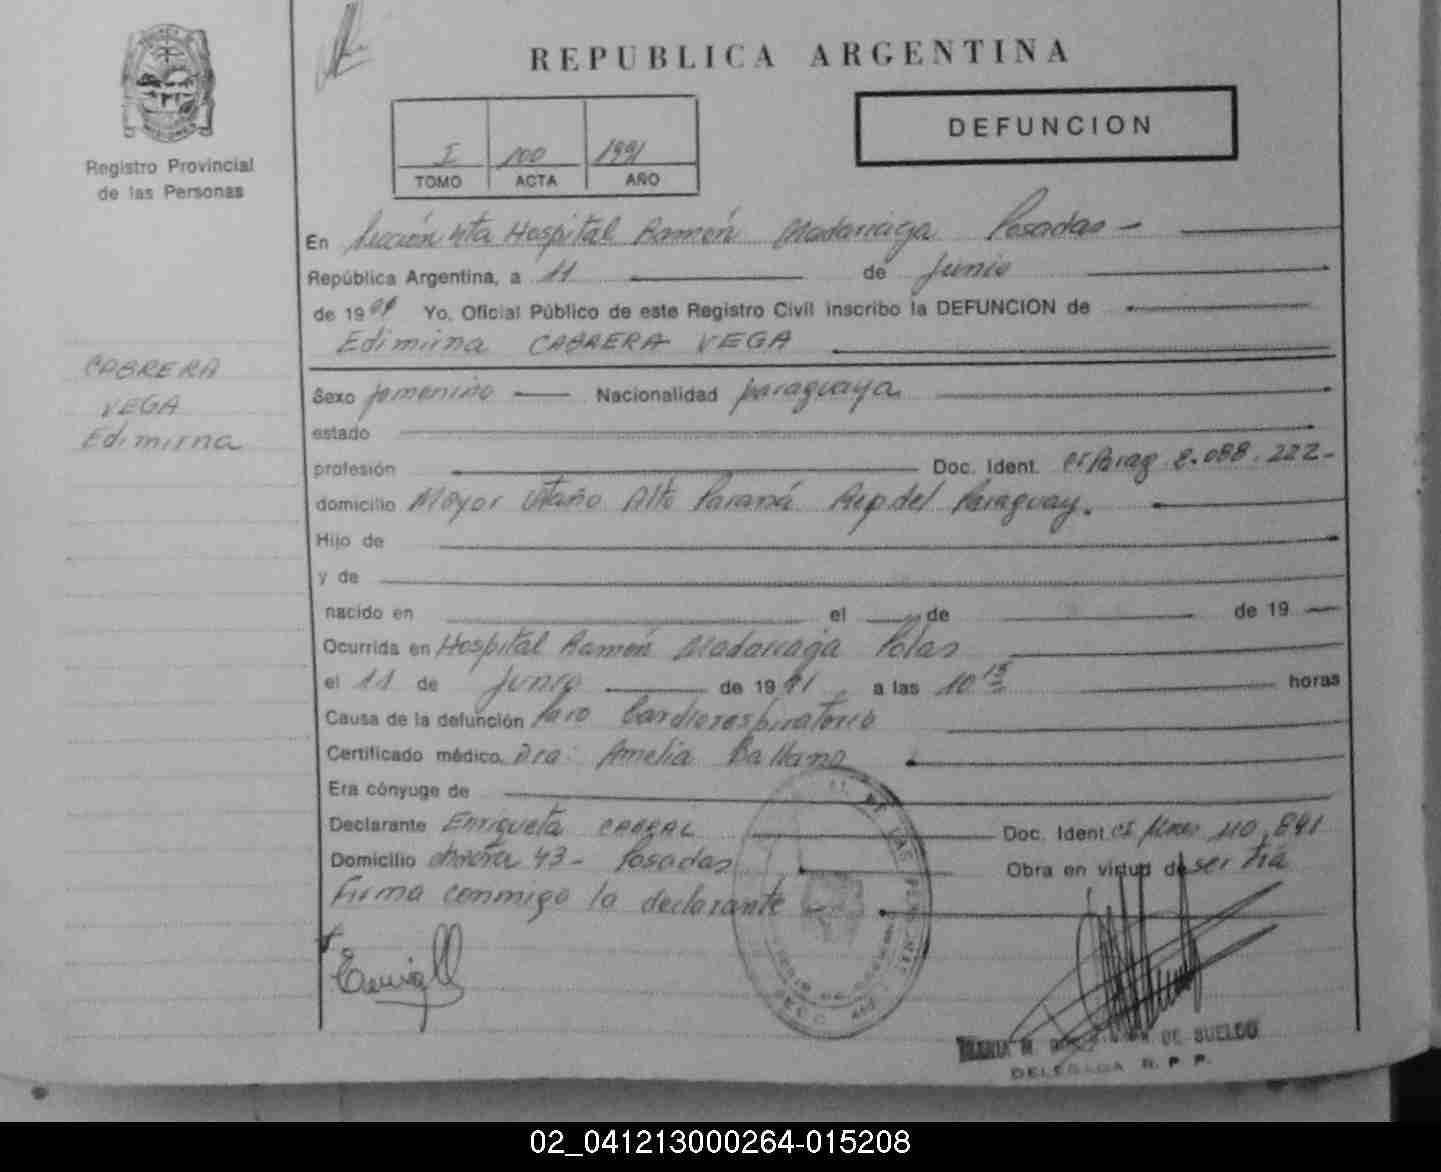 REPUBLICA ARGENTINA
DEFUNCION
Registro Provincial
de las Personas
I 100 1991
TOMO ACTA AÑO
En Sección 4ta Hospital Ramón Madariaga Posadas
República Argentina, a 11 de Junio
de 1991 Yo, Oficial Público de este Registro Civil inscribo la DEFUNCION de
Edimirna CABRERA VEGA
CABRERA
VEGA
Edimirna
Sexo femenino Nacionalidad paraguaya
estado
profesión Doc. Ident. CI Parag 2.088.222-
domicilio Mayor Otaño Alto Paraná Rep. del Paraguay.
Hijo de
y de
nacido en el de de 19
Ocurrida en Hospital Ramón Madariaga Pdas
el 11 de Junio de 1991 a las 10 15 horas
Causa de la defunción Paro Cardiorespiratorio
Certificado médico, Dra: Amelia Ballano
Era cónyuge de
Declarante Enriqueta CABRAL Doc. Ident CI Mnes 110.841
Domicilio 43- Posadas Obra en virtud de ser tía
Firma conmigo la declarante
DE LAS PERSONAS
MARIA DE SUELDO
DELEGADA R. P. P.
02_041213000264-015208